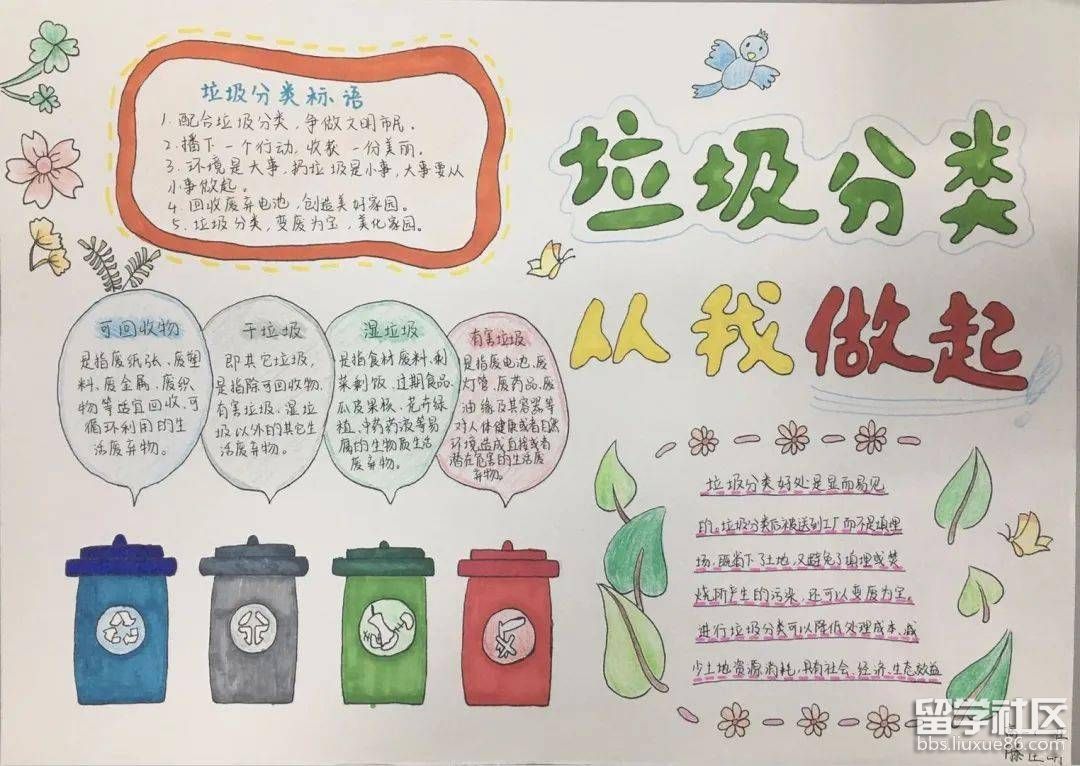 垃圾分类标语
1. 配合垃圾分类，争做文明市民。
2. 播下一个行动，收获一份美丽。
3. 环境是大事，扔垃圾是小事，大事要从
小事做起。
4. 回收废弃电池，创造美好家园。
5. 垃圾分类，变废为宝，美化家园。
垃圾分类
从我做起
可回收物
是指废纸张、废塑
料、废金属、废织
物等适宜回收、可
循环利用的生
活废弃物。
干垃圾
即其它垃圾，
是指除可回收物、
有害垃圾、湿垃
圾以外的其它生
活废弃物。
湿垃圾
是指食材废料、剩
菜剩饭、过期食品、
瓜皮果核、花卉绿
植、中药药渣等易
腐的生物质生活
废弃物。
有害垃圾
是指废电池、废
灯管、废药品、废
油缘及其容器等
对人体健康或者自然
环境造成直接或者
潜在危害的生活废
弃物。
垃圾分类好处是显而易见
的。垃圾分类后被送到工厂而不是填埋
场，既省下了土地，又避免了填埋或焚
烧所产生的污染，还可以变废为宝。
进行垃圾分类可以降低处理成本，减
少土地资源消耗，具有社会、经济、生态效益
留学社区
bbs.liuxue86.com